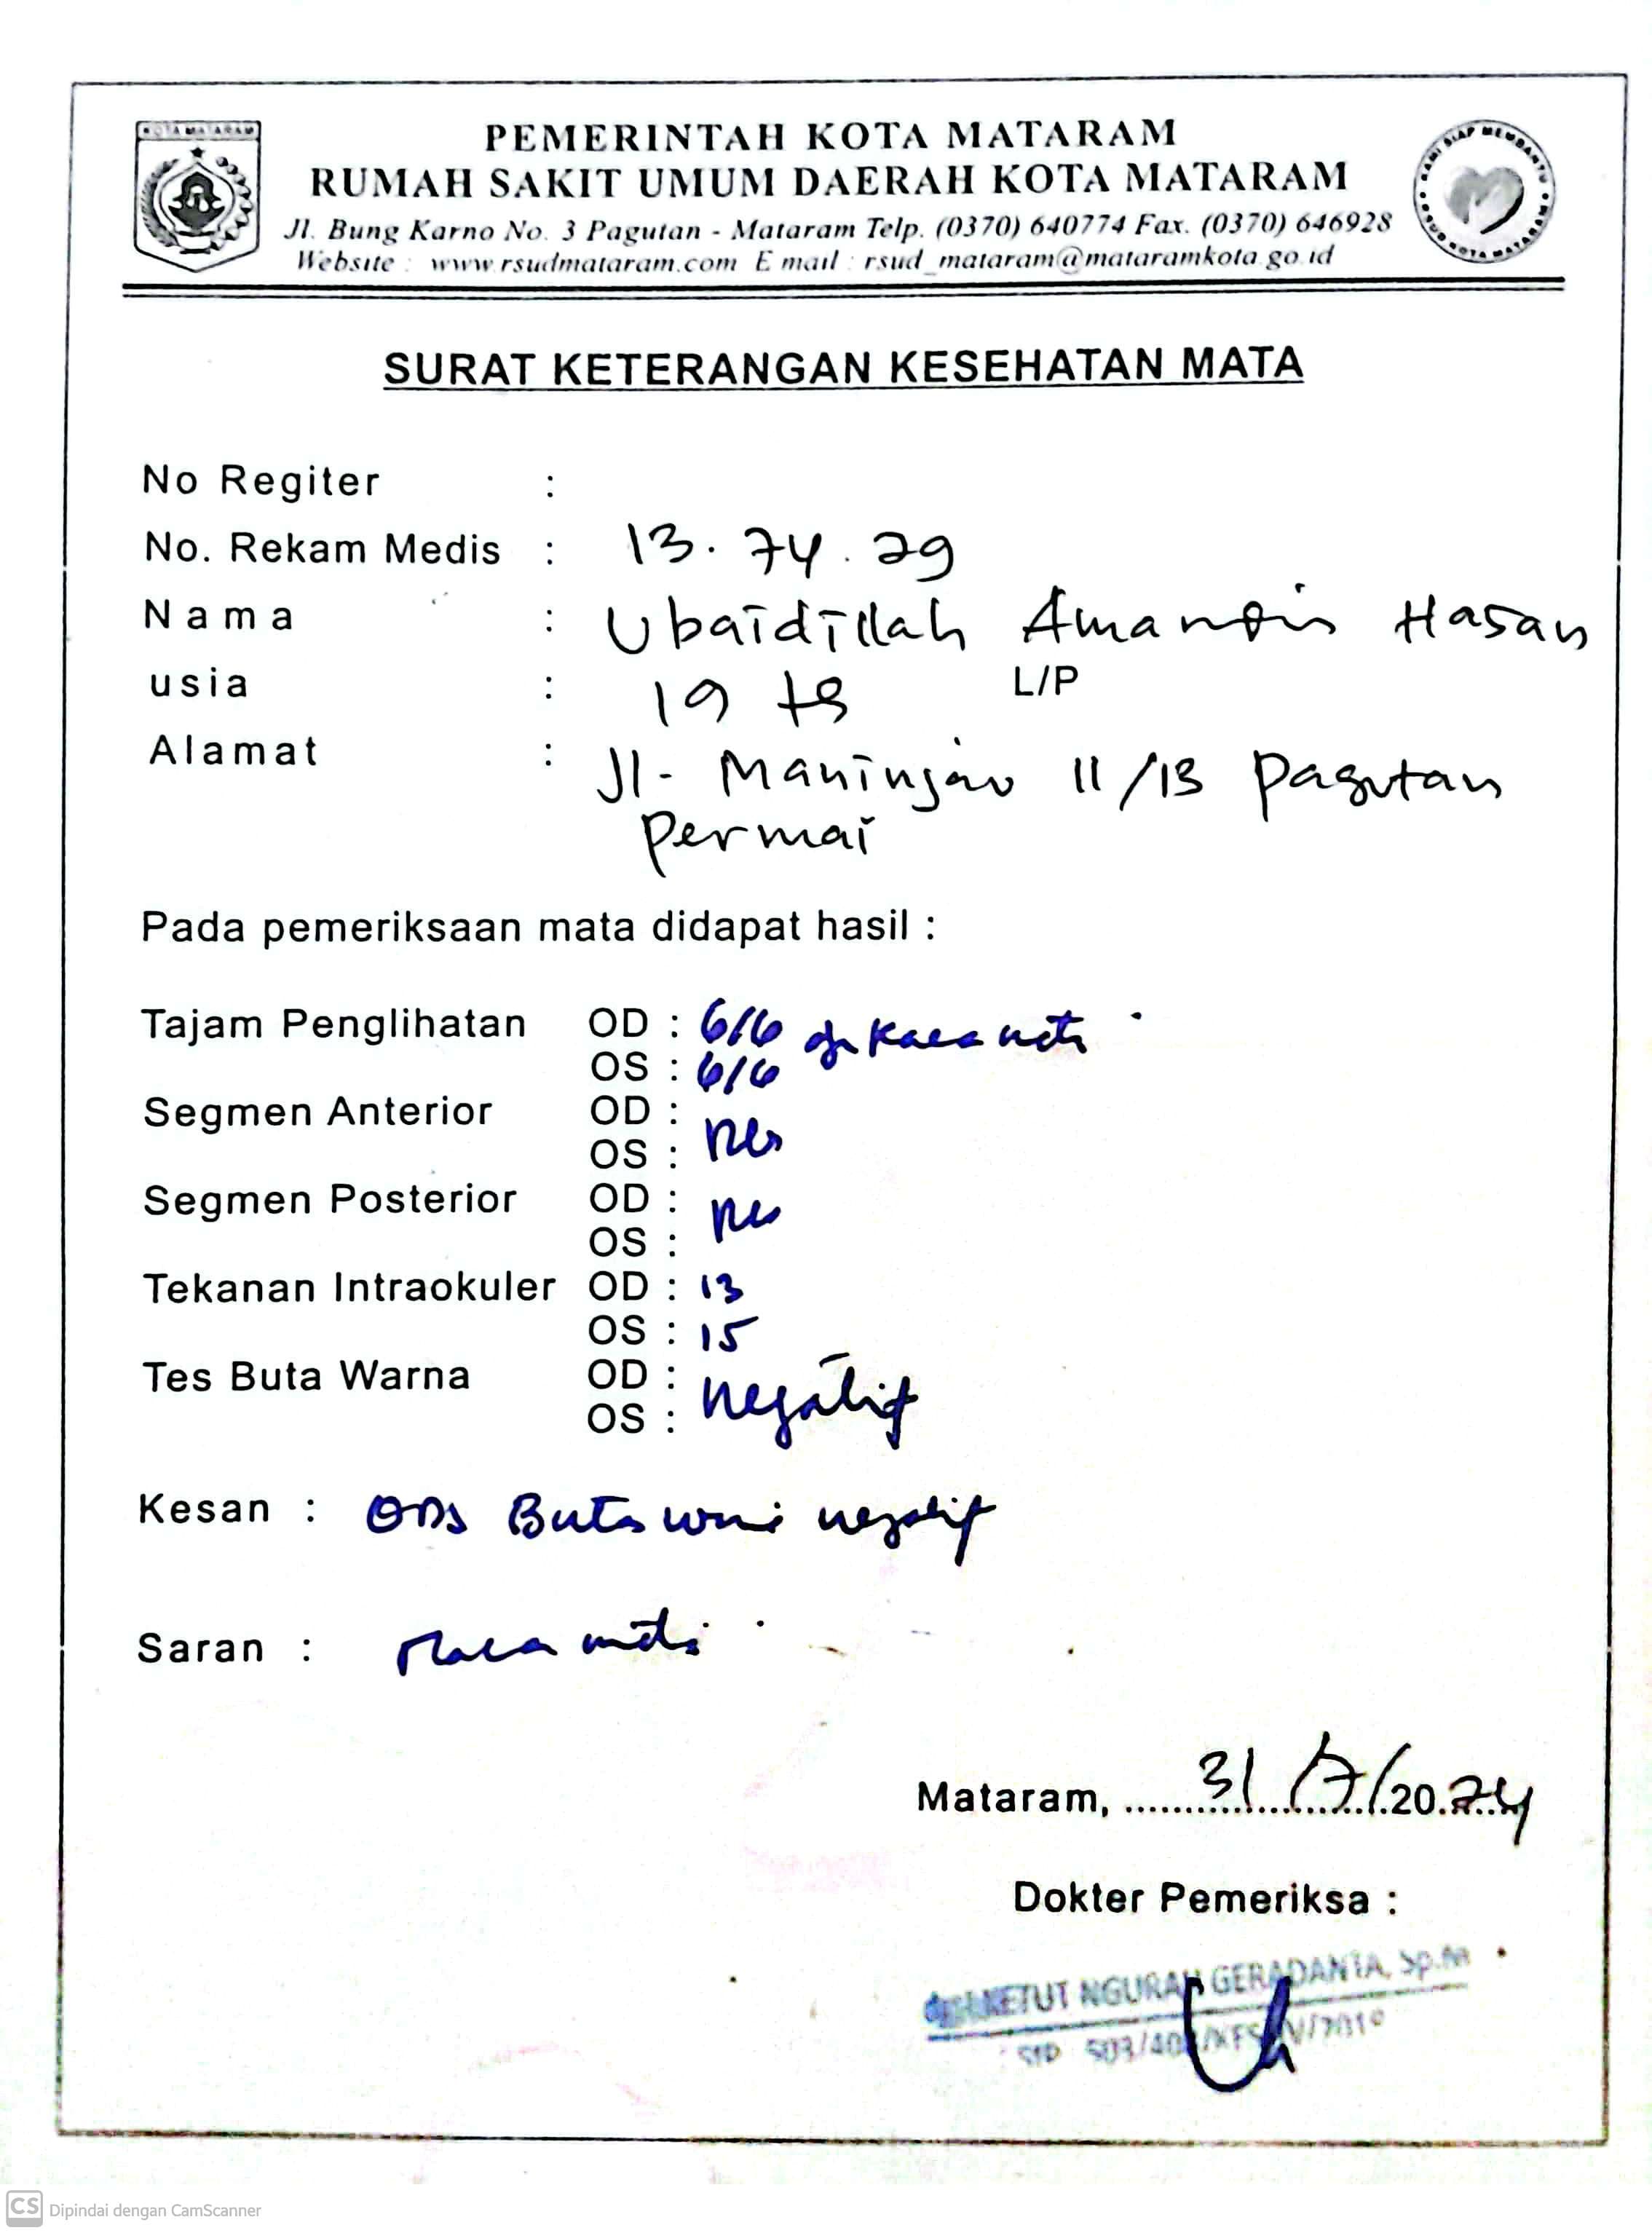 KOTA MATARAM
PEMERINTAH KOTA MATARAM
RUMAH SAKIT UMUM DAERAH KOTA MATARAM
Jl. Bung Karno No. 3 Pagutan - Mataram Telp. (0370) 640774 Fax. (0370) 646928
Website : www.rsudmataram.com E mail : rsud_mataram@mataramkota.go.id
KAMI SIAP MEMBANTU
RSUD KOTA MATARAM
SURAT KETERANGAN KESEHATAN MATA
No Regiter :
No. Rekam Medis : 13. 74. 29
Nama : Ubaidillah Hasan
usia : 19 th L/P
Alamat : Jl. Maninjau 11/13 Pagutan
Permai
Pada pemeriksaan mata didapat hasil :
Tajam Penglihatan OD : 6/6 kaca mata
OS : 6/6
Segmen Anterior OD :
OS :
Segmen Posterior OD :
OS :
Tekanan Intraokuler OD : 13
OS : 15
Tes Buta Warna OD : negatif
OS :
Kesan : ODS Buta warna negatif
Saran : kaca mata
Mataram, 31/7/2024
Dokter Pemeriksa :
KETUT NGURAH GERADANTA, Sp.M
SIP 503/
CS Dipindai dengan CamScanner